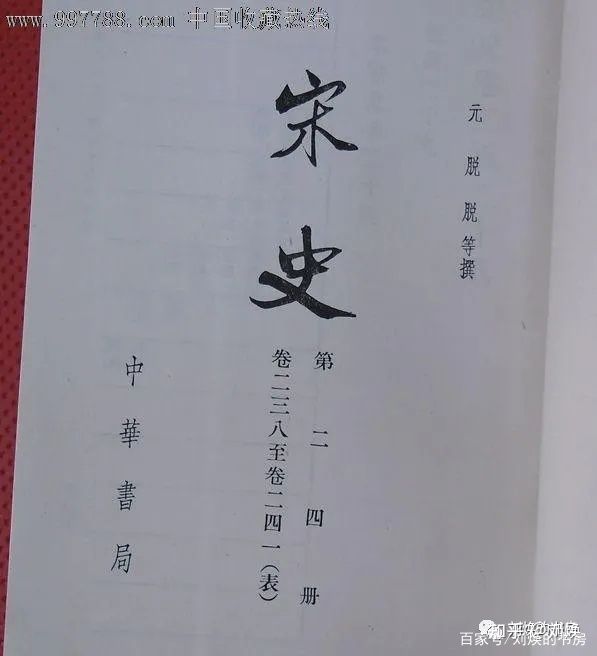 www.997788.com 中国收藏热线
元 脱脱等撰
宋史
第二四册
卷二三八至卷二四一(表)
中華書局
百家号/刘焕的书房